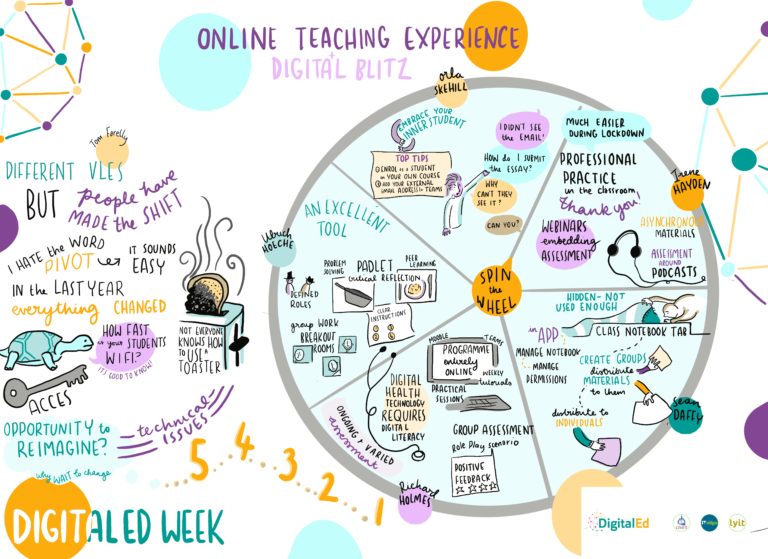 ONLINE TEACHING EXPERIENCE
+
DIGITAL BLITZ
Tom Farelly
DIFFERENT VLES
BUT people have
MADE THE SHIFT
I HATE THE WORD
PIVOT
IT SOUNDS
EASY
IN the LAST YEAR
everything CHANGED
HOW FAST
is your STUDENTS
WIFI?
IT'S GOOD TO KNOW
NOT EVERYONE
KNOWS HOW
TO USE
A
TOASTER
ACCES
OPPORTUNITY to
REIMAGINE?
technical
ISSUES
why WAIT to change
5 4 3 2 1
DIGITALED WEEK
SPIN
the
WHEEL
orla
SKEHILL
EMBRACE YOUR
INNER STUDENT
TOP TIPS
① ENROL as a STUDENT
on YOUR OWN COURSE
② ADD YOUR EXTERNAL
EMAIL ADDRESS to TEAMS
I DIDN'T SEE
the EMAIL!
HOW do I SUBMIT
the ESSAY?
WHY
CAN'T THEY
SEE IT?
CAN YOU?
Irene
HAYDEN
MUCH EASIER
DURING LOCKDOWN
PROFESSIONAL
PRACTICE
in the classroom
thank you!
WEBINARS
embedding
ASSESSMENT
ASYNCHRONOUS
MATERIALS
ASSESSMENT
AROUND
PODCASTS
Sean
DAFFY
HIDDEN - NOT
USED ENOUGH
CLASS NOTEBOOK TAB
in APP
MANAGE NOTEBOOK
MANAGE
PERMISSIONS
CREATE GROUPS
distribute
MATERIALS
to them
distribute to
INDIVIDUALS
Richard
HOLMES
MOODLE
TEAMS
PROGRAMME
entirely
ONLINE
WEEKLY
tutorials
PRACTICAL
SESSIONS
DIGITAL
HEALTH
TECHNOLOGY
REQUIRES
DIGITAL
LITERACY
ONGOING & VARIED
assessment
GROUP ASSESSMENT
Role Play scenario
POSITIVE
FEEDBACK
Ulrich
HOECHE
AN EXCELLENT
TOOL
PROBLEM
SOLVING
PADLET
critical REFLECTION
PEER
LEARNING
DEFINED
ROLES
CLEAR
INSTRUCTIONS
group WORK
BREAKOUT
ROOMS
DigitalEd
lyit